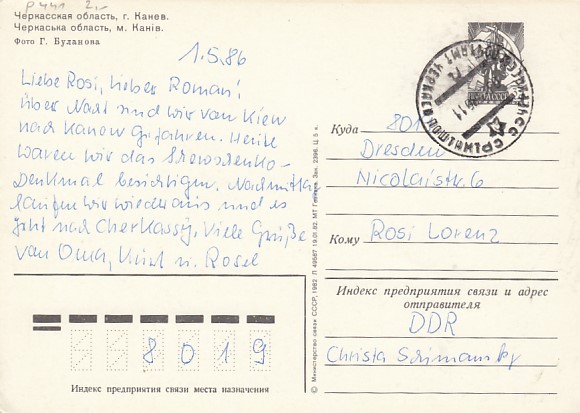 Черкасская область, г. Канев.
Черкаська область, м. Канів.
Фото Г. Буланова
1.5.86
Liebe Rosi, lieber Roman!
über Nacht sind wir von Kiew
nach Kanow gefahren. Heute
waren wir das Schewtschenko-
Denkmal besichtigen. Nachmittag
laufen wir wieder aus und es
geht nach Cherkassy. Viele Grüße
von Oma, Knut u. Rosel
Куда 801
Dresden
Nicolaistr. 6
Кому Rosi Lorenz
Индекс предприятия связи и адрес
отправителя
DDR
Christa
8 0 1 9
Индекс предприятия связи места назначения
© Министерство связи СССР, 1982